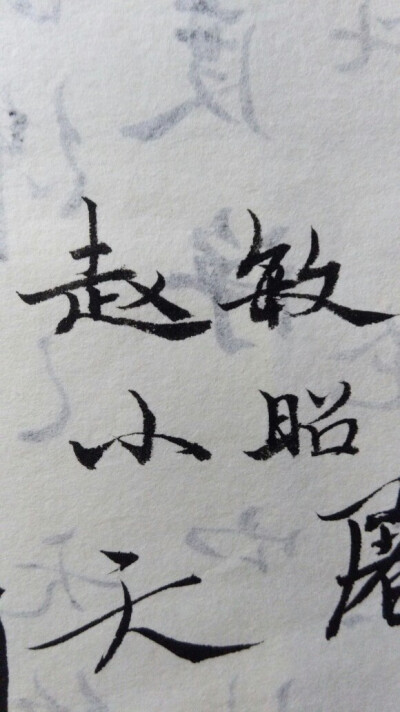 赵敏
小昭
天屠